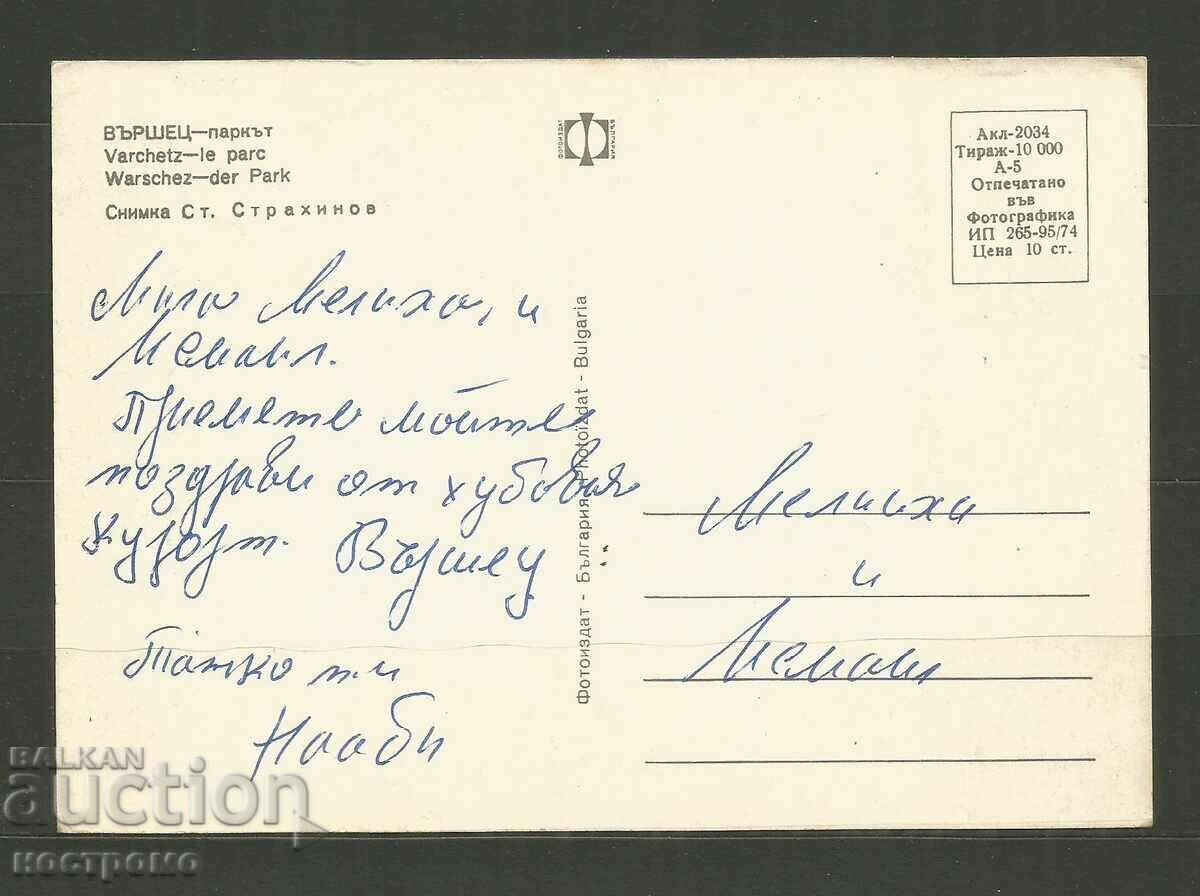 ВЪРШЕЦ—паркът
Varchetz—le parc
Warschez—der Park
Снимка Ст. Страхинов
ФОТОИЗДАТ
БЪЛГАРИЯ
Акл-2034
Тираж-10 000
А-5
Отпечатано
във
Фотографика
ИП 265-95/74
Цена 10 ст.
Мила Мелиха, и
Исмаил.
Приемете мойте
поздрави от хубовия
Курорт. Вършец
Татко ти
Фотоиздат - България, Photoïzdat - Bulgaria
Мелиха
и
Исмаил
BALKAN
auction
костромо